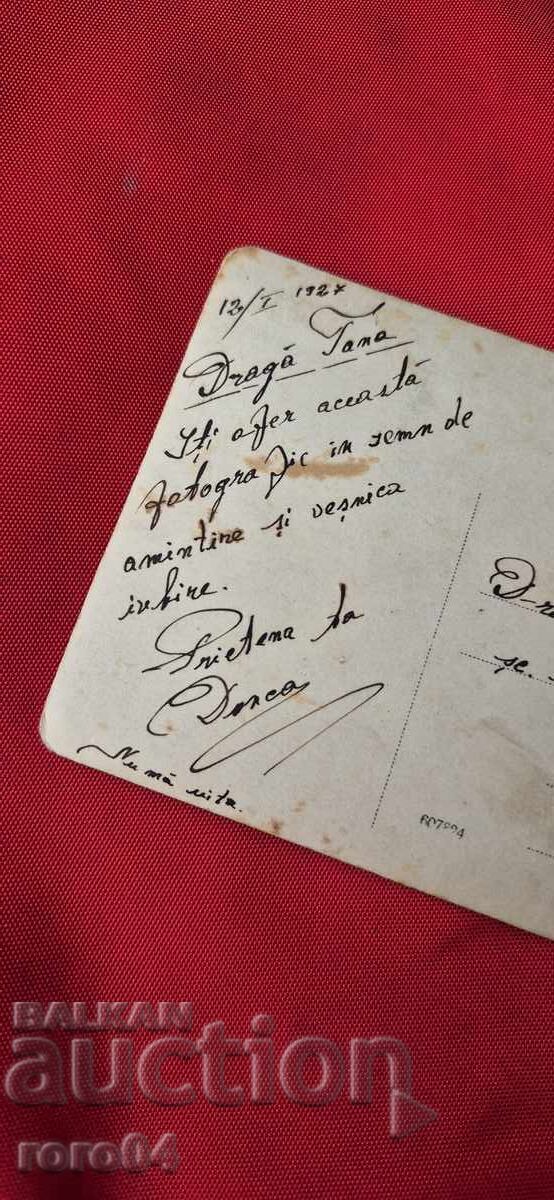 12/I 1927
Dragă Tana
Iți ofer această
fotografie in semn de
amintire și veșnica
iubire.
Prietena ta
Donca
Nu mă uita.
Dr
șc.
607894
BALKAN
auction
roro04